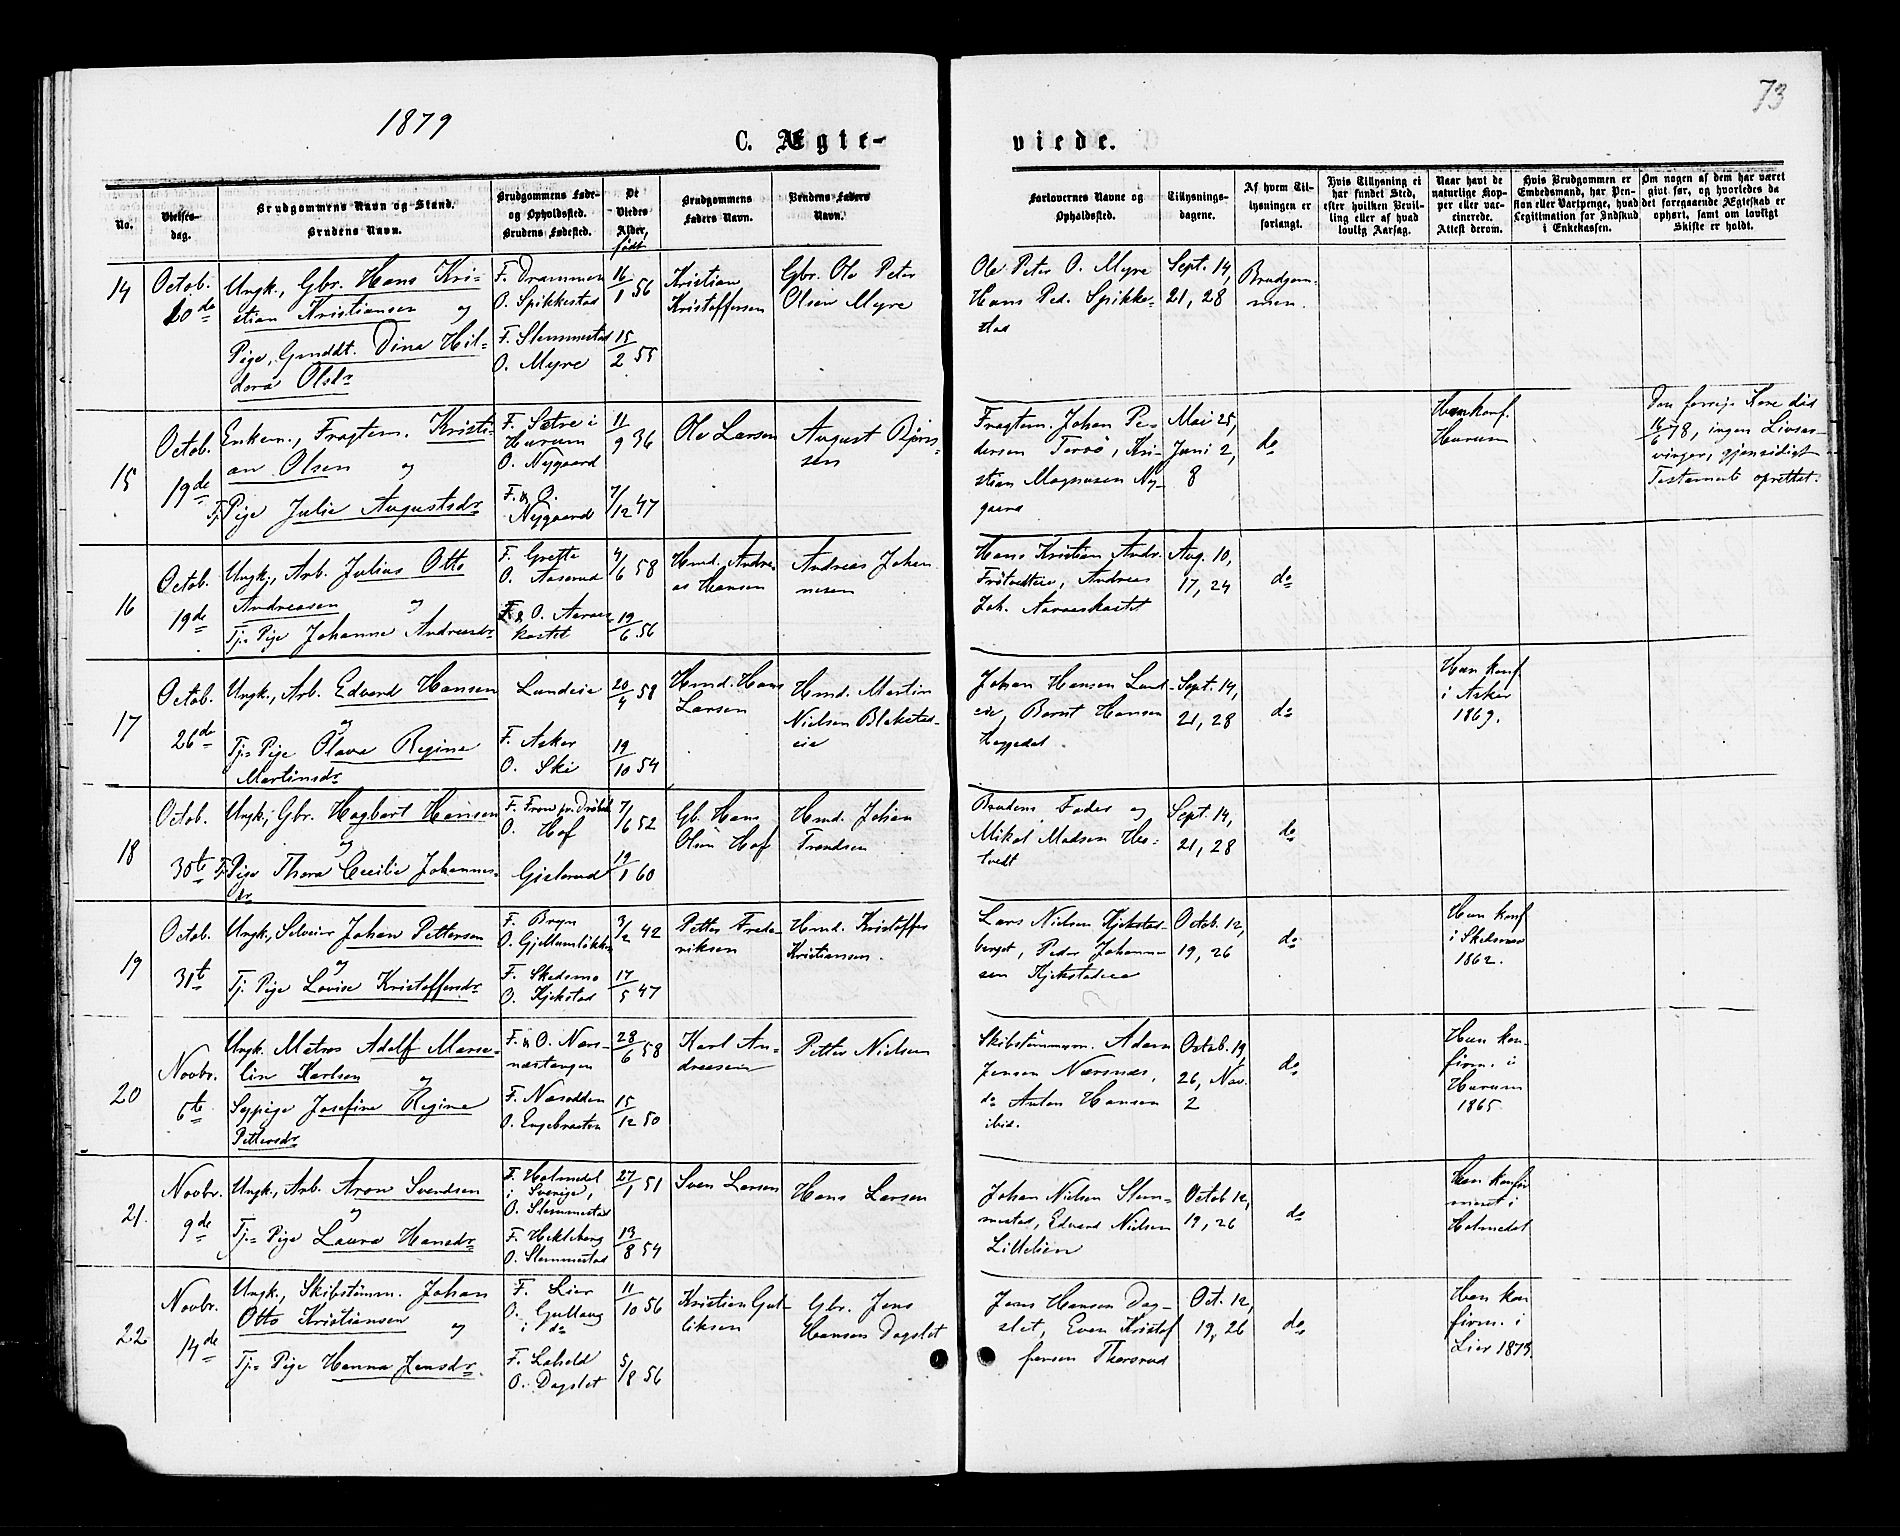 1879
73
C. Ægte-
viede.
No.
Vielses-
dag.
Brudgommens Navn og Stand.
Brudens Navn.
Brudgommens Føde-
og Opholdssted.
Brudens Fødested.
De
Viedes
Alder,
født
Brudgommens
Faders Navn.
Brudens Faders
Navn.
Forlovernes Navne og
Opholdssted.
Tillysnings-
dagene.
Af hvem Til-
lysningen er
forlangt.
Hvis Tillysning ei
har fundet Sted,
efter hvilken Bevil-
ling eller af hvad
lovlig Aarsag.
Naar havt de
naturlige Kop-
per eller vac-
cinerede.
Attest derom.
Hvis Brudgommen er
Embedsmand, har Pen-
sion eller Vartpenge, hvad
Legitimation for Indskud
i Enkekassen.
Om nogen af dem har været
gift før, og hvorledes da
det foregaaende Ægteskab er
ophørt, samt om lovligt
Skifte er holdt.
14
Octob.
20de
Ungk., Gbr. Hans Kri-
stian Kristiansen og
Pige, Gmddt. Dina Hil-
dora Olsdr
F. Drammen
O. Spikkestad
F. Slemmestad
O. Myre
16/1 56
15/2 55
Kristian
Kristoffersen
Gbr. Ole Peter
Olsen Myre
Ole Peter O. Myre
Hans Ped. Spikke-
stad
Sept. 14,
21, 28
Brudgom-
men.
15
Octob.
19de
Enkem., Fragtem. Kristi-
an Olsen og
Tj. Pige Julie Augustsdr
F. Sætre i
Hurum
O. Nygaard
F. & O.
Nygaard
11/9 36
7/12 47
Ole Larsen
August Björns-
sen
Fragtem. Johan Pe-
dersen Torvö, Kri-
stian Magnusen Ny-
gaard
Mai 25,
Juni 2,
8
do
Han konf.
Hurum
Den forrige Kone död
16/6 78, ingen Livsar-
vinger, gjensidigt
Testamente oprettet.
16
Octob.
19de
Ungk., Arb. Julius Otto
Andreasen og
Tj. Pige Johanne Andreasdr
F. Grette
O. Aaserud
F. & O. Aaraas-
kastet
4/6 58
19/6 56
Hmd. Andre-
as Hansen
Andreas Johan-
nesen
Hans Kristian Andr.
Frötvedteie, Andreas
Joh. Aaraaskastet
Aug. 10,
17, 24
do
17
Octob.
26de
Ungk., Arb. Edvard Hansen
og
Tj. Pige Olava Regine
Martinsdr
Lundeie
F. Asker
O. Ski
20/4 58
19/10 54
Hmd. Hans
Larsen
Hmd. Martin
Nielsen Blakstad-
eie
Johan Hansen Lund-
eie, Bernt Hansen
Heggedal.
Sept. 14,
21, 28
do
Hun konf.
i Asker
1869.
18
Octob.
30te
Ungk., Gbr. Hagbart Hansen
og
Tj. Pige Thora Cecilie Johannes-
dr
F. Fron pr. Dröbak
O. Hof
Gislerud
7/6 52
19/1 60
Gb. Hans
Olsen Hof
Hmd. Johan
Trondsen
Brudens Fader og
Mikal Madsen He-
tvedt
Sept. 14,
21, 28
do
19
Octob.
31te
Ungk., Selveier Johan Pettersen
og
Tj. Pige Lovise Kristoffersdr
F. Bryn
O. Gjellumlökken
F. Skedsmo
O. Kjekstad
3/2 42
17/5 47
Petter Frede-
riksen
Hmd. Kristoffer
Kristiansen.
Lars Nielsen Kjekstad-
berget, Peder Johanne-
sen Kjekstadeie
Octob. 12,
19, 26
do
Hun konf.
i Skedsmo
1862.
20
Novbr.
6te
Ungk. Matros Adolf Marse-
lin Karlsen og
Sypige Josefine Regine
Pettersdr
F. & O. Nærs-
næstangen
F. Næsodden
O. Engebraaten
28/6 58
15/12 50
Karl An-
dreasen
Petter Nielsen
Skibstömmerm. Adam
Jensen Nærsnes,
do Anton Hansen
ibid.
Octob. 19,
26, Nov.
2
do
Hun kon-
firm. i
Hurum
1865.
21.
Novbr.
9de
Ungk., Arb. Aron Svendsen
og
Tj. Pige Laura Hansdr
F. Holmedal
i Sverige,
O. Slemmestad
F. Hekleberg
O. Slemmestad
27/1 51
13/8 54
Sven Larsen
Hans Larsen
Johan Nielsen Slem-
mestad, Edvard Nielsen
Lillelien
Octob. 12,
19, 26
do
Han konfir-
meret i
Holmedal
22
Novbr.
14de
Ungk., Skibstömm. Johan
Otto Kristiansen og
Tj. Pige Hanna Jensdr.
F. Lier
O. Gullaug
i do
F. Laheld
O. Dagslet
11/10 56
5/8 56
Kristian Gul-
liksen
Gbr. Jens
Hansen Dagslet
Jens Hansen Dag-
slet, Even Kristof-
fersen Thorsrud
Oct. 12,
19, 26
do
Han kon
firm. i
Lier 1873.